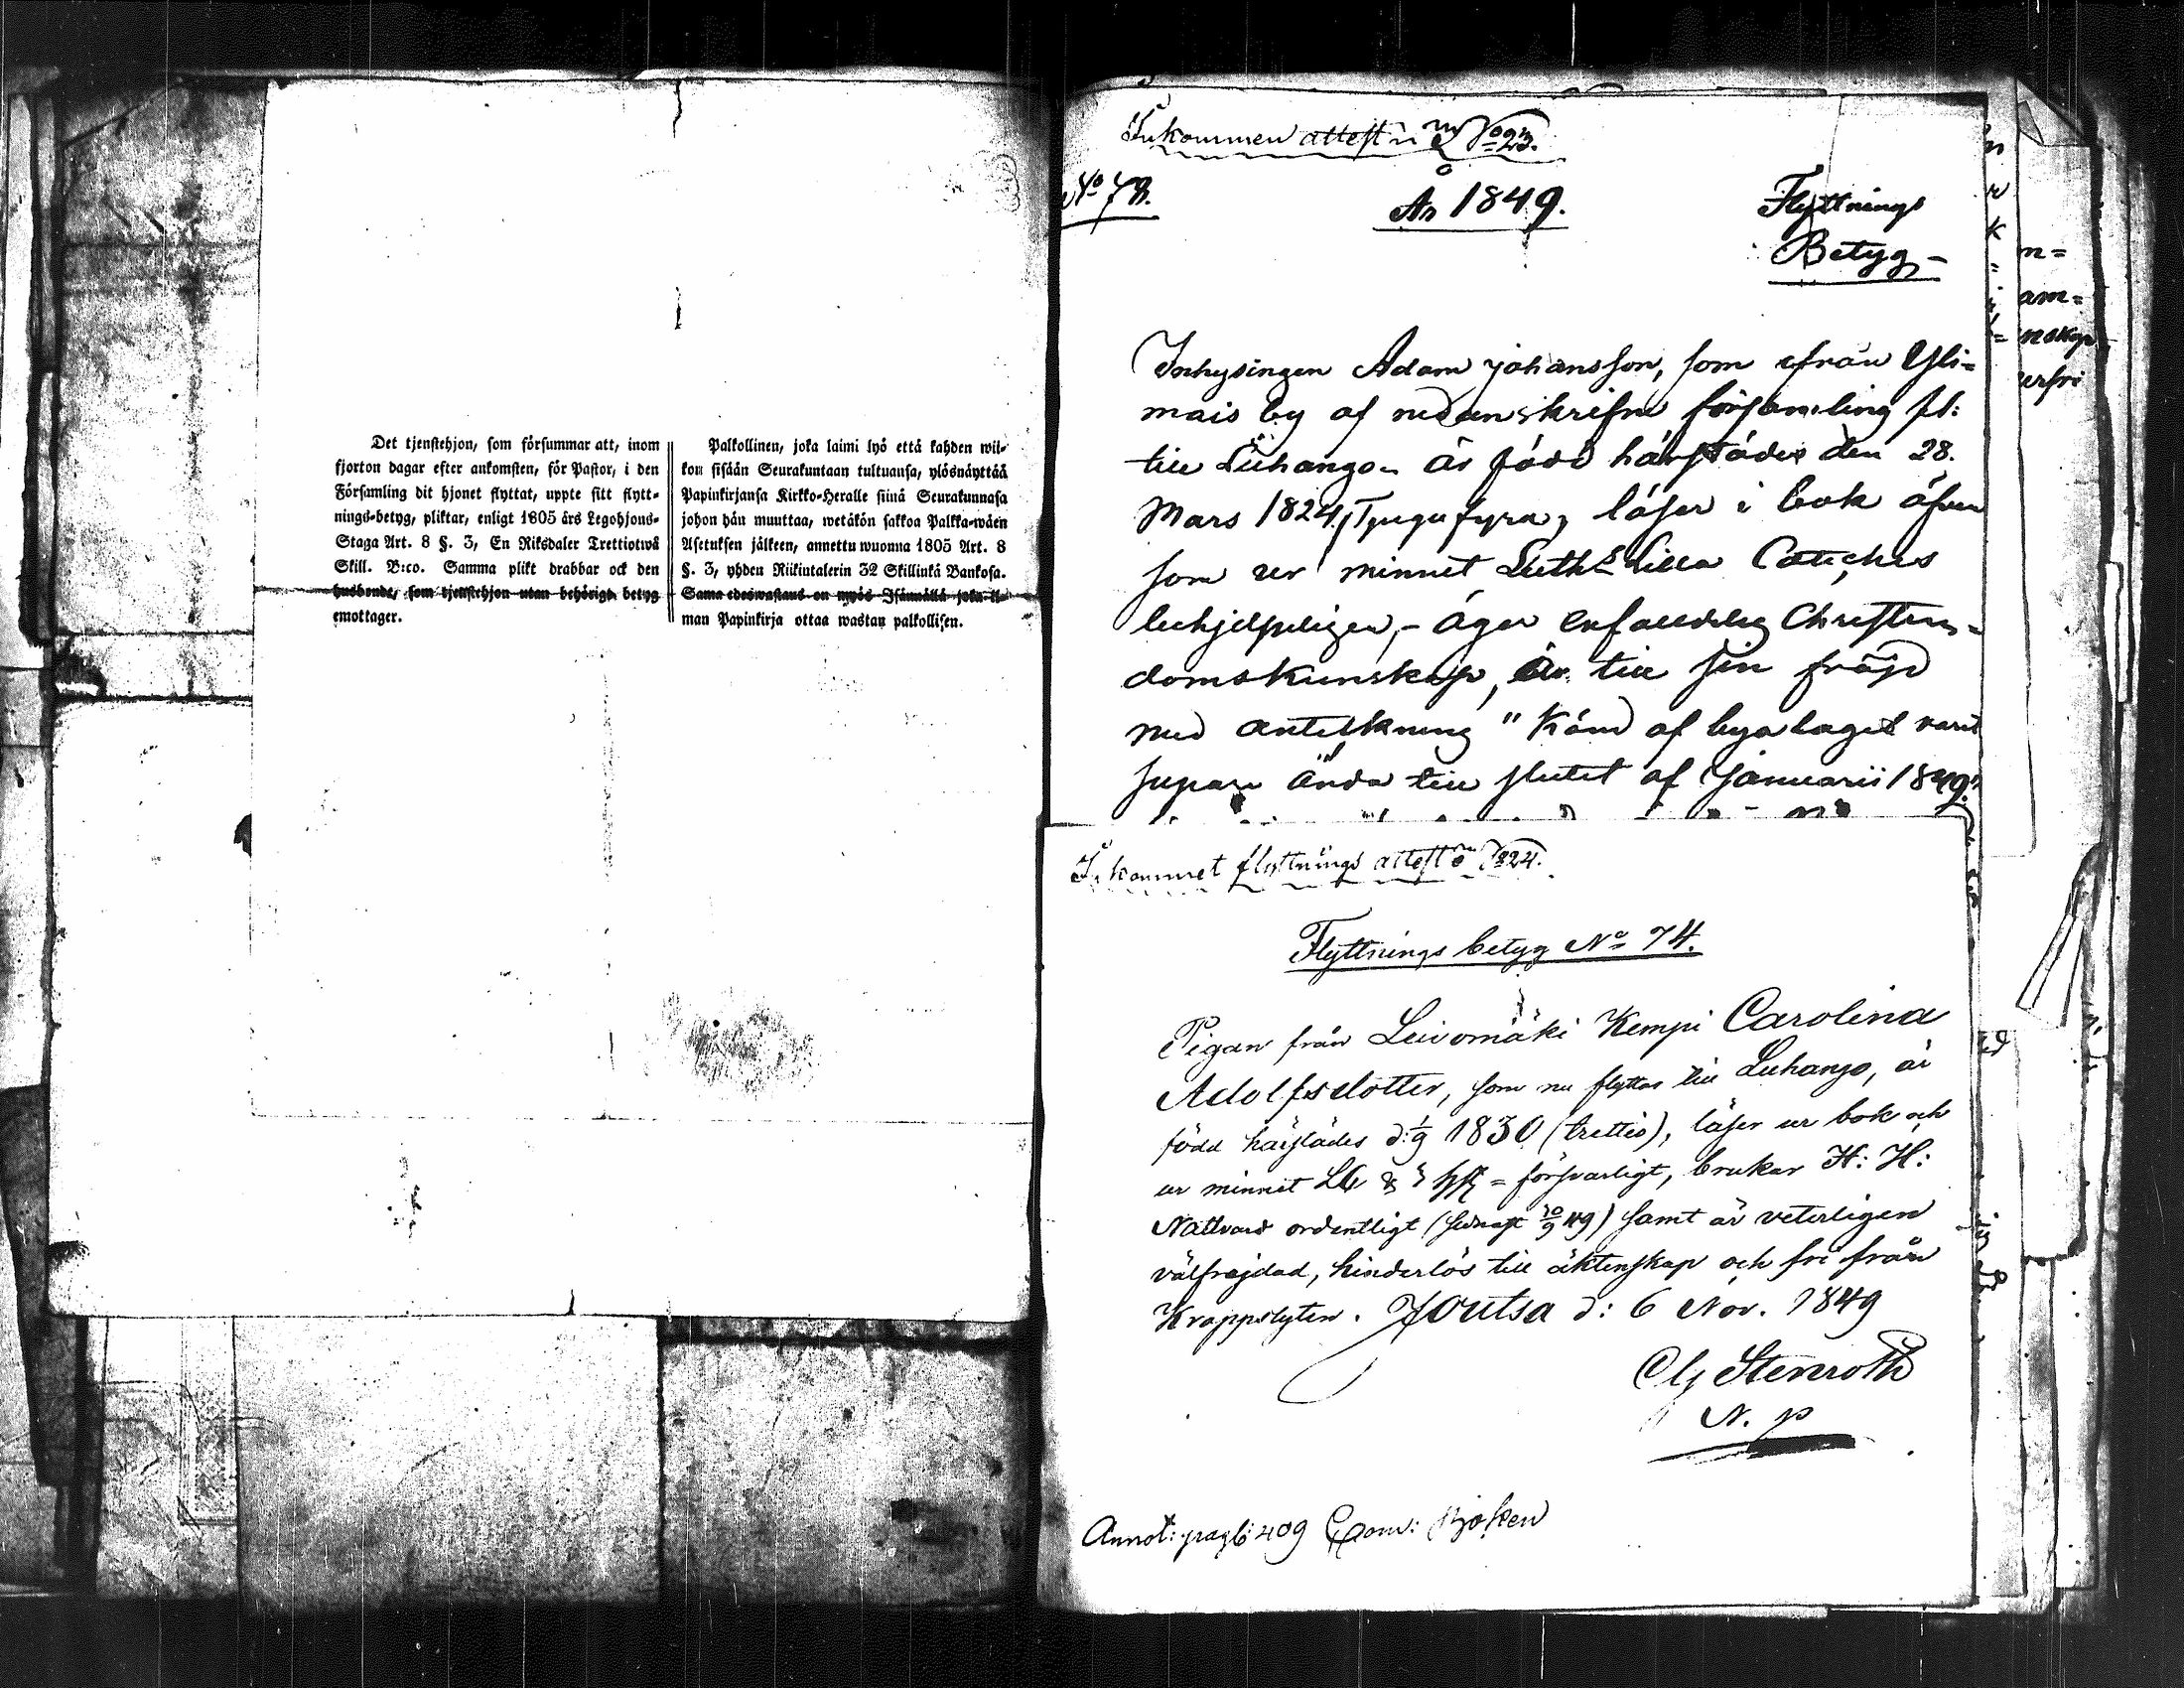 Det tjenstehjon, som försummar att, inom
fjorton dagar efter ankomsten, för Pastor, i den
Församling dit hjonet flyttat, uppte sitt flytt-
nings-betyg, pliktar, enligt 1805 års Legohjons-
Staga Art. 8 §. 3, En Riksdaler Trettiotwå
Skill. B:co. Samma plikt drabbar ock den
husbonde, som tjenstehjon utan behörigt betyg
emottager.
Palkollinen, joka laimi lyö että kahden wii-
kon sisään Seurakuntaan tultuansa, ylösnäyttää
Papinkirjansa Kirkko-Heralle siinä Seurakunnasa
johon hän muuttaa, wetäkön sakkoa Palkka-wäen
Asetuksen jälkeen, annettu wuonna 1805 Art. 8
§. 3, yhden Riikintalerin 32 Skillinkä Bankosa.
Sama edeswastaus on myös Isännällä joka il-
man Papinkirja ottaa wastan palkollisen.
Inkommen attest
No 78.
År 1849.
Flyttnings
Betyg
Inhysingen Adam Johansson, som ifrån Yli=
mais by af nedanskrifne församling fl:
till Luhango är född härstädes den 28.
Mars 1824, Tjugufyra, läser i bok äfven
som ur minnet Luth: Lilla Cateches
behjelpeligen, äger enfaldelig Christen=
domskunskap, är till sin fräjd
med anteckning "Känd af byalaget varit
supare ända till slutet af Januarii 1849"
Inkommet flyttnings attest No 24.
Flyttnings betyg No 74.
Pigan från Leivomäki Kempi Carolina
Adolfsdotter, som nu flyttar till Luhango, är
född härstädes d: 1/9 1830 (trettio), läser ur bok och
ur minnet försvarligt, brukar H: H:
Nattvard ordentligt (sednast 49) samt är veterligen
välfrejdad, hinderlös till äktenskap och fri från
Kroppslyten. Joutsa d: 6 Nov. 1849
Stenroth
N. p
Annot: pag: 409 Com: Boken